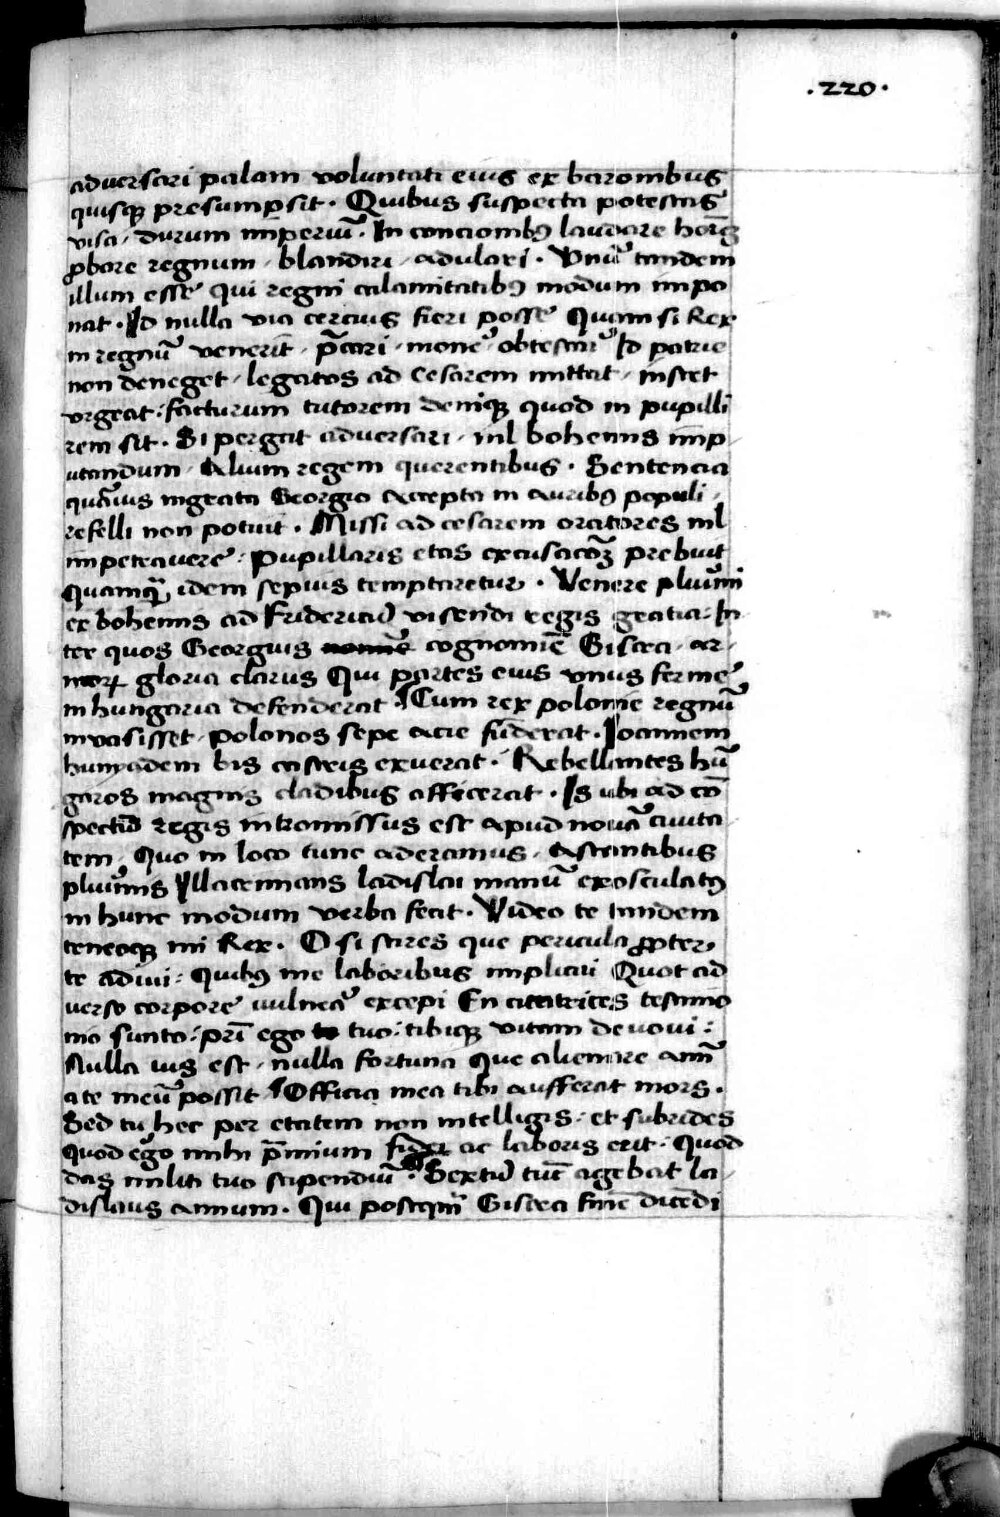 .220.
adversari palam voluntati eius ex baronibus
quisq; presumpsit. Quibus suspecta potestas
visa, durum imperiū. In concionibꝰ laudare horū
ꝓbare regnum, blandiri, adulari. Vnū tandem
illum esse qui regni calamitatibꝰ modum impo
nat. Id nulla via cercius fieri posse Quam si Rex
in regnū venerit, p̄cari, monē, obtestari Id patrie
non deneget, legatos ad Cesarem mittat, instet
vrgeat: facturum tutorem deniq; quod in pupilli
rem sit. Si pergat adversari, nil bohemis imp
utandum, Alium regem querentibus. Sentencia
quāuis ingrata Georgio accepta in auribꝰ populi,
refelli non potuit. Missi ad cesarem oratores nil
impetravere: Pupillaris etas excusacōꝫ prebuit
Quamq̄ idem sepius temptaretur. Venere plurimi
ex bohemis ad Fridericū visendi regis gratia: In
ter quos Georgius cognomīe Giscra, ar,
morꝝ gloria clarus Qui partes eius vnus ferme
in hungaria defenderat. Cum rex polonie regnū
invasisset, polonos sepe acie fuderat. Joannem
hunyadem bis castris exuerat. Rebellantes hū
garos magnis cladibus affecerat. Is ubi ad cō
spectū regis intromissus est apud nouā ciuita
tem, Quo in loco tunc aderamus, Astantibus
plurimis Illacrimans ladislai manū exosculatꝰ
in hunc modum verba fecit. Video te tandem
teneoq; mi Rex. O si scires que pericula ꝓpter
te adiui: Quibꝰ me laboribus implicui Quot ad
verso corpore vulnera excepi En cicatrices testimo
nio sunto: pr̄i ego tuo: tibiq; vitam devovi:
Nulla vis est, nulla fortuna Que alienare anim̄
a te meū possit Officia mea tibi aufferat mors.
Sed tu hec per etatem non intelligis: et subrides
Quod ergo mihi p̄mium fidei ac laboris erit. Quod
das militi tuo stipendiū. Sextū tūc agebat la
dislaus annum. Qui postq̄m Giscra finē dicēdi